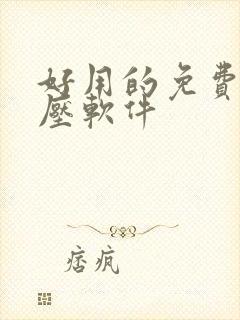 好用的免費
壓軟件
痞疯